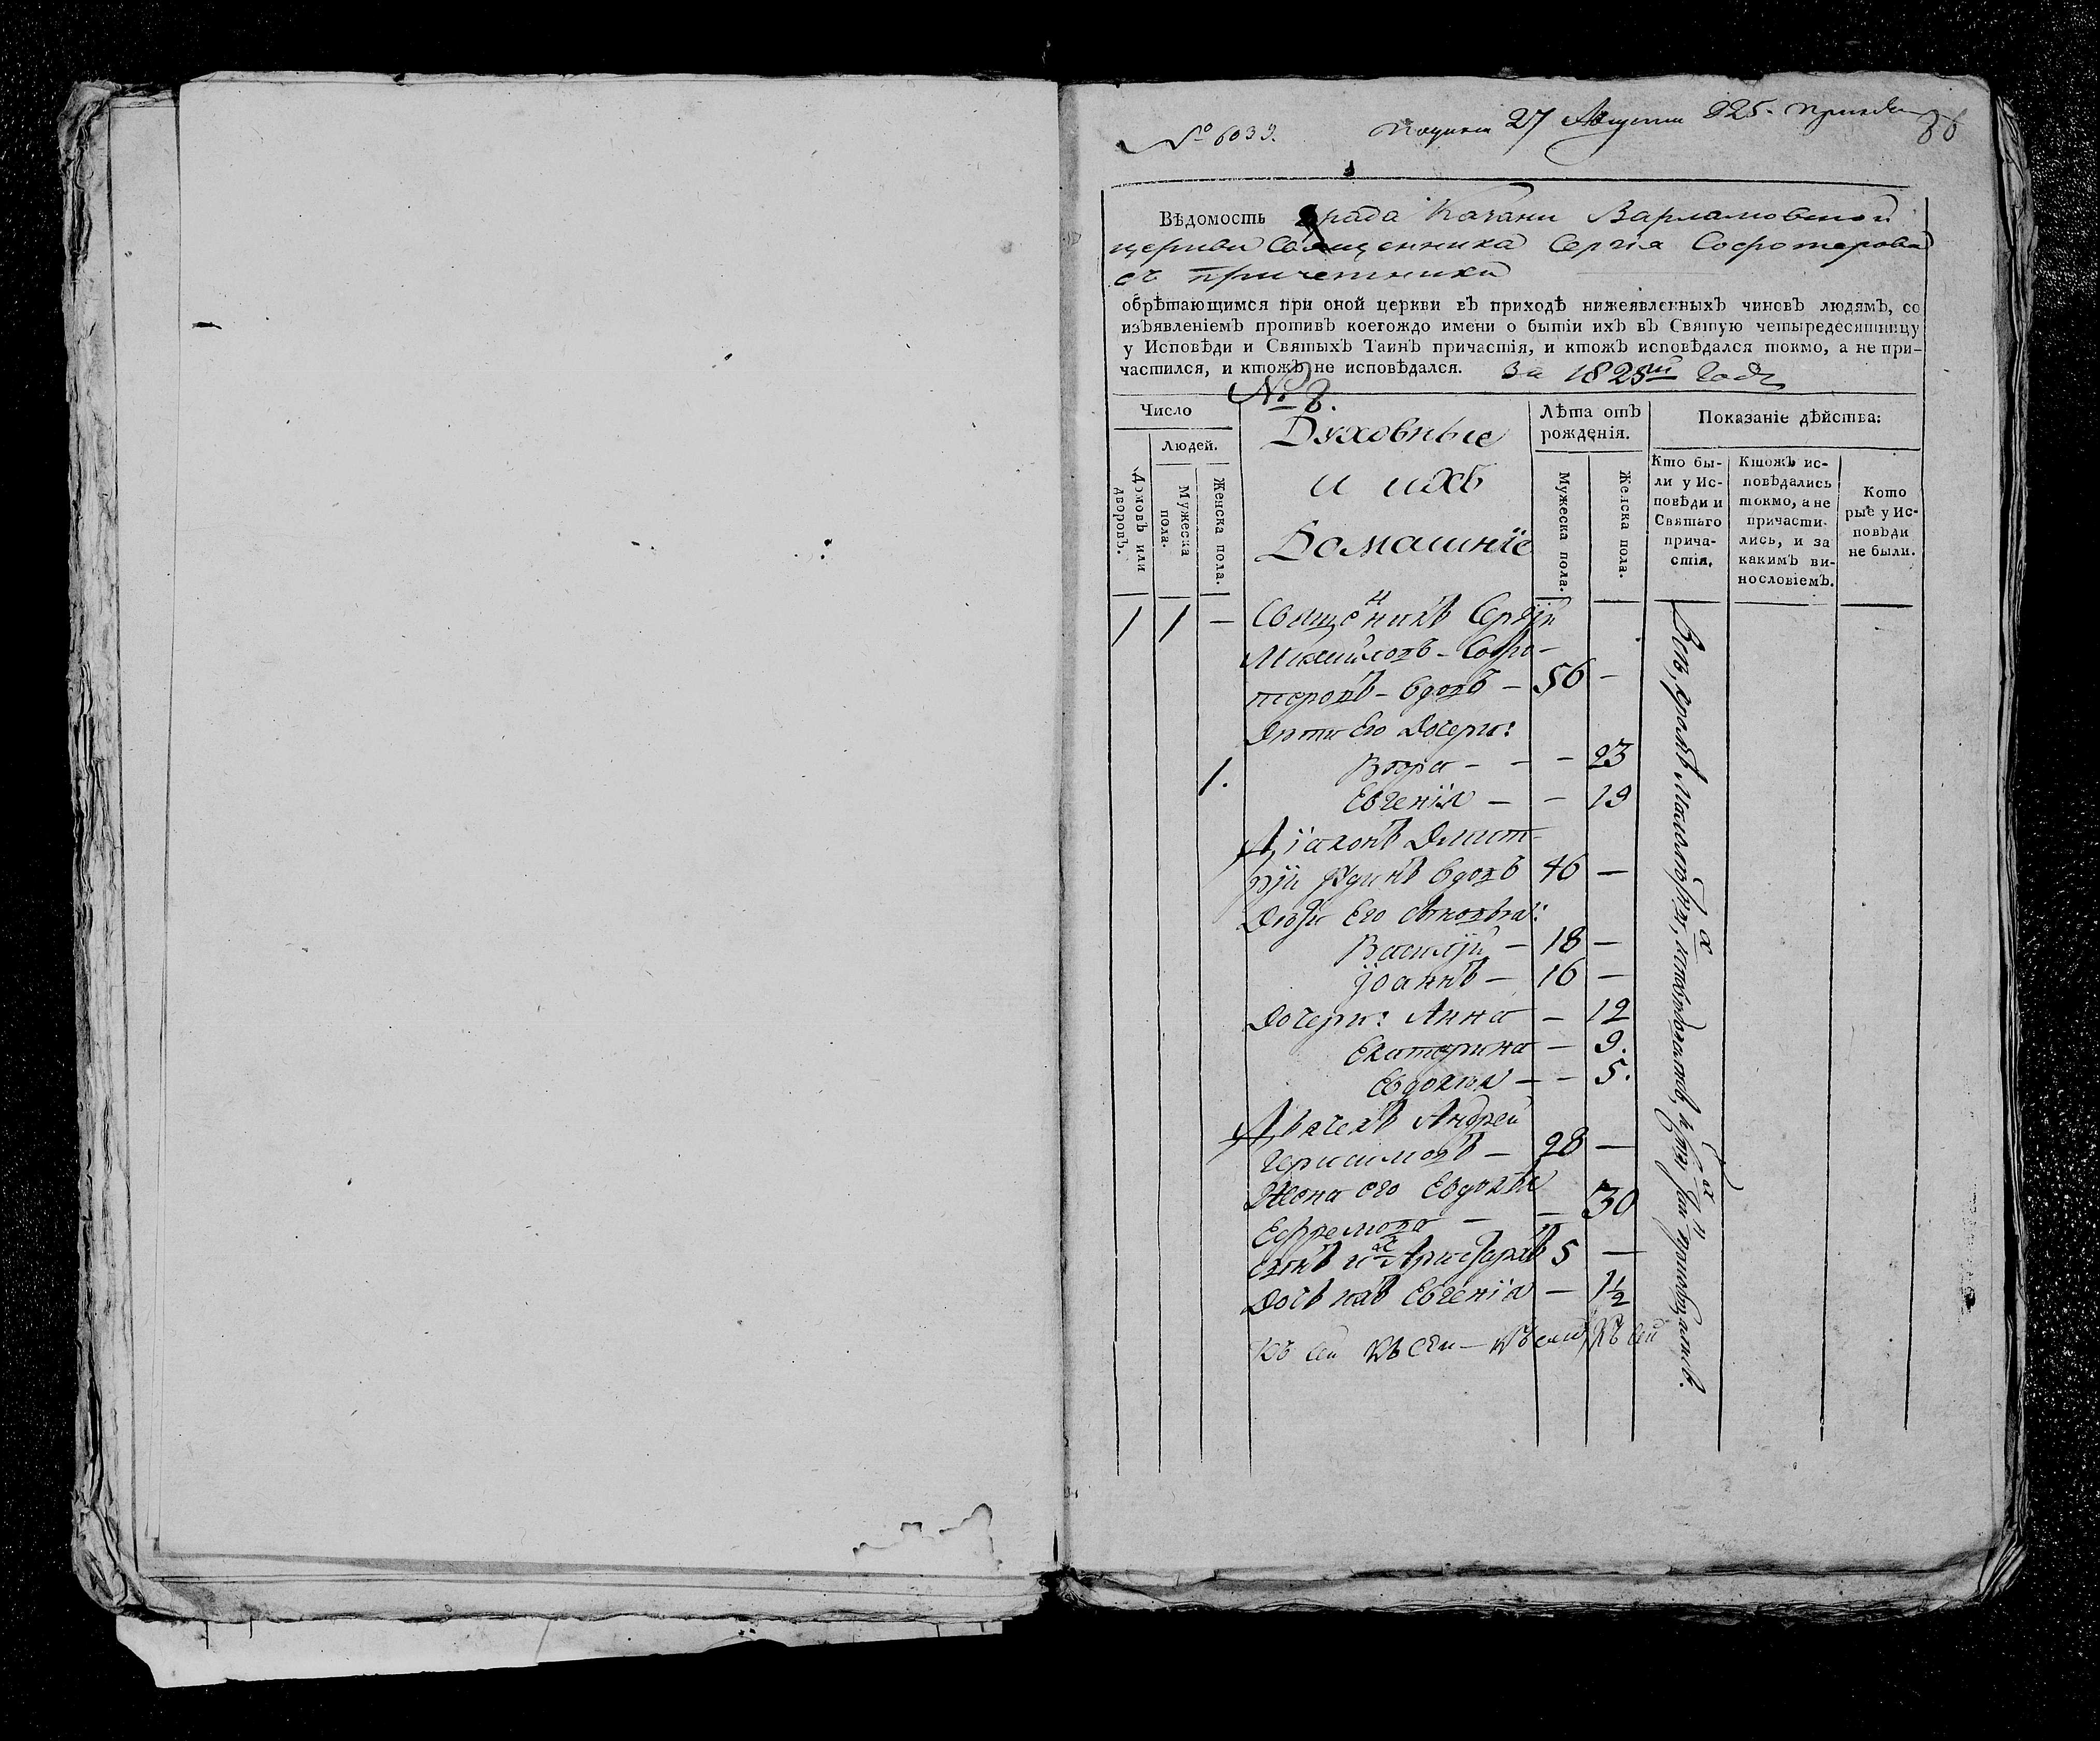 № 6039. 27 Августа 825. 86
Вѣдомость града Казани Варламовской
церкви Священника Сергія Софотерова
съ причетники
обрѣтающимся при оной церкви въ приходѣ нижеявленныхъ чиновъ людямъ, со
изъявленіемъ противъ коегождо имени о бытіи ихъ въ Святую четыредесятницу
у Исповѣди и Святыхъ Таинъ причастія, и ктожъ исповѣдался токмо, а не при-
частился, и ктожъ не исповѣдался. За 1825й Годъ
№ 8.
Число
Людей.
Домовъ или дворовъ.
Мужеска пола.
Женска пола.
Духовные
и ихъ
Домашніе
Лѣта отъ
рожденія.
Мужеска пола.
Женска пола.
Показаніе дѣйства:
Кто бы-
ли у Ис-
повѣди и
Святаго
прича-
стія.
Ктожъ ис-
повѣдались
токмо, а не
причасти-
лись, и за
какимъ ви-
нословіемъ.
Кото
рые у Ис-
повѣди
не были.
1 1 — Священникъ Сергѣй
Михайловъ Софо-
теровъ - вдовъ — 56 —
Дѣти Его Дочери:
1. Вѣра — — — 23
Евгенія — — 19
Діаконъ Димит-
рій вдовъ 46 —
Дѣти Его сыновья:
Василій — 18 —
Іоаннъ — 16 —
Дочери: Анна — 12
Екатерина — 9.
Евдокия — — 5.
Дьячекъ Андрей
Герасимовъ — 28 —
Жена его Евдокія
Ефремова — — 30
Сынъ ихъ Аристархъ 5 —
Дочь ихъ Евгенія — 1½
Къ сей Къ сей — Къ сей Къ сей
Всѣ, кромѣ малолѣтнихъ,